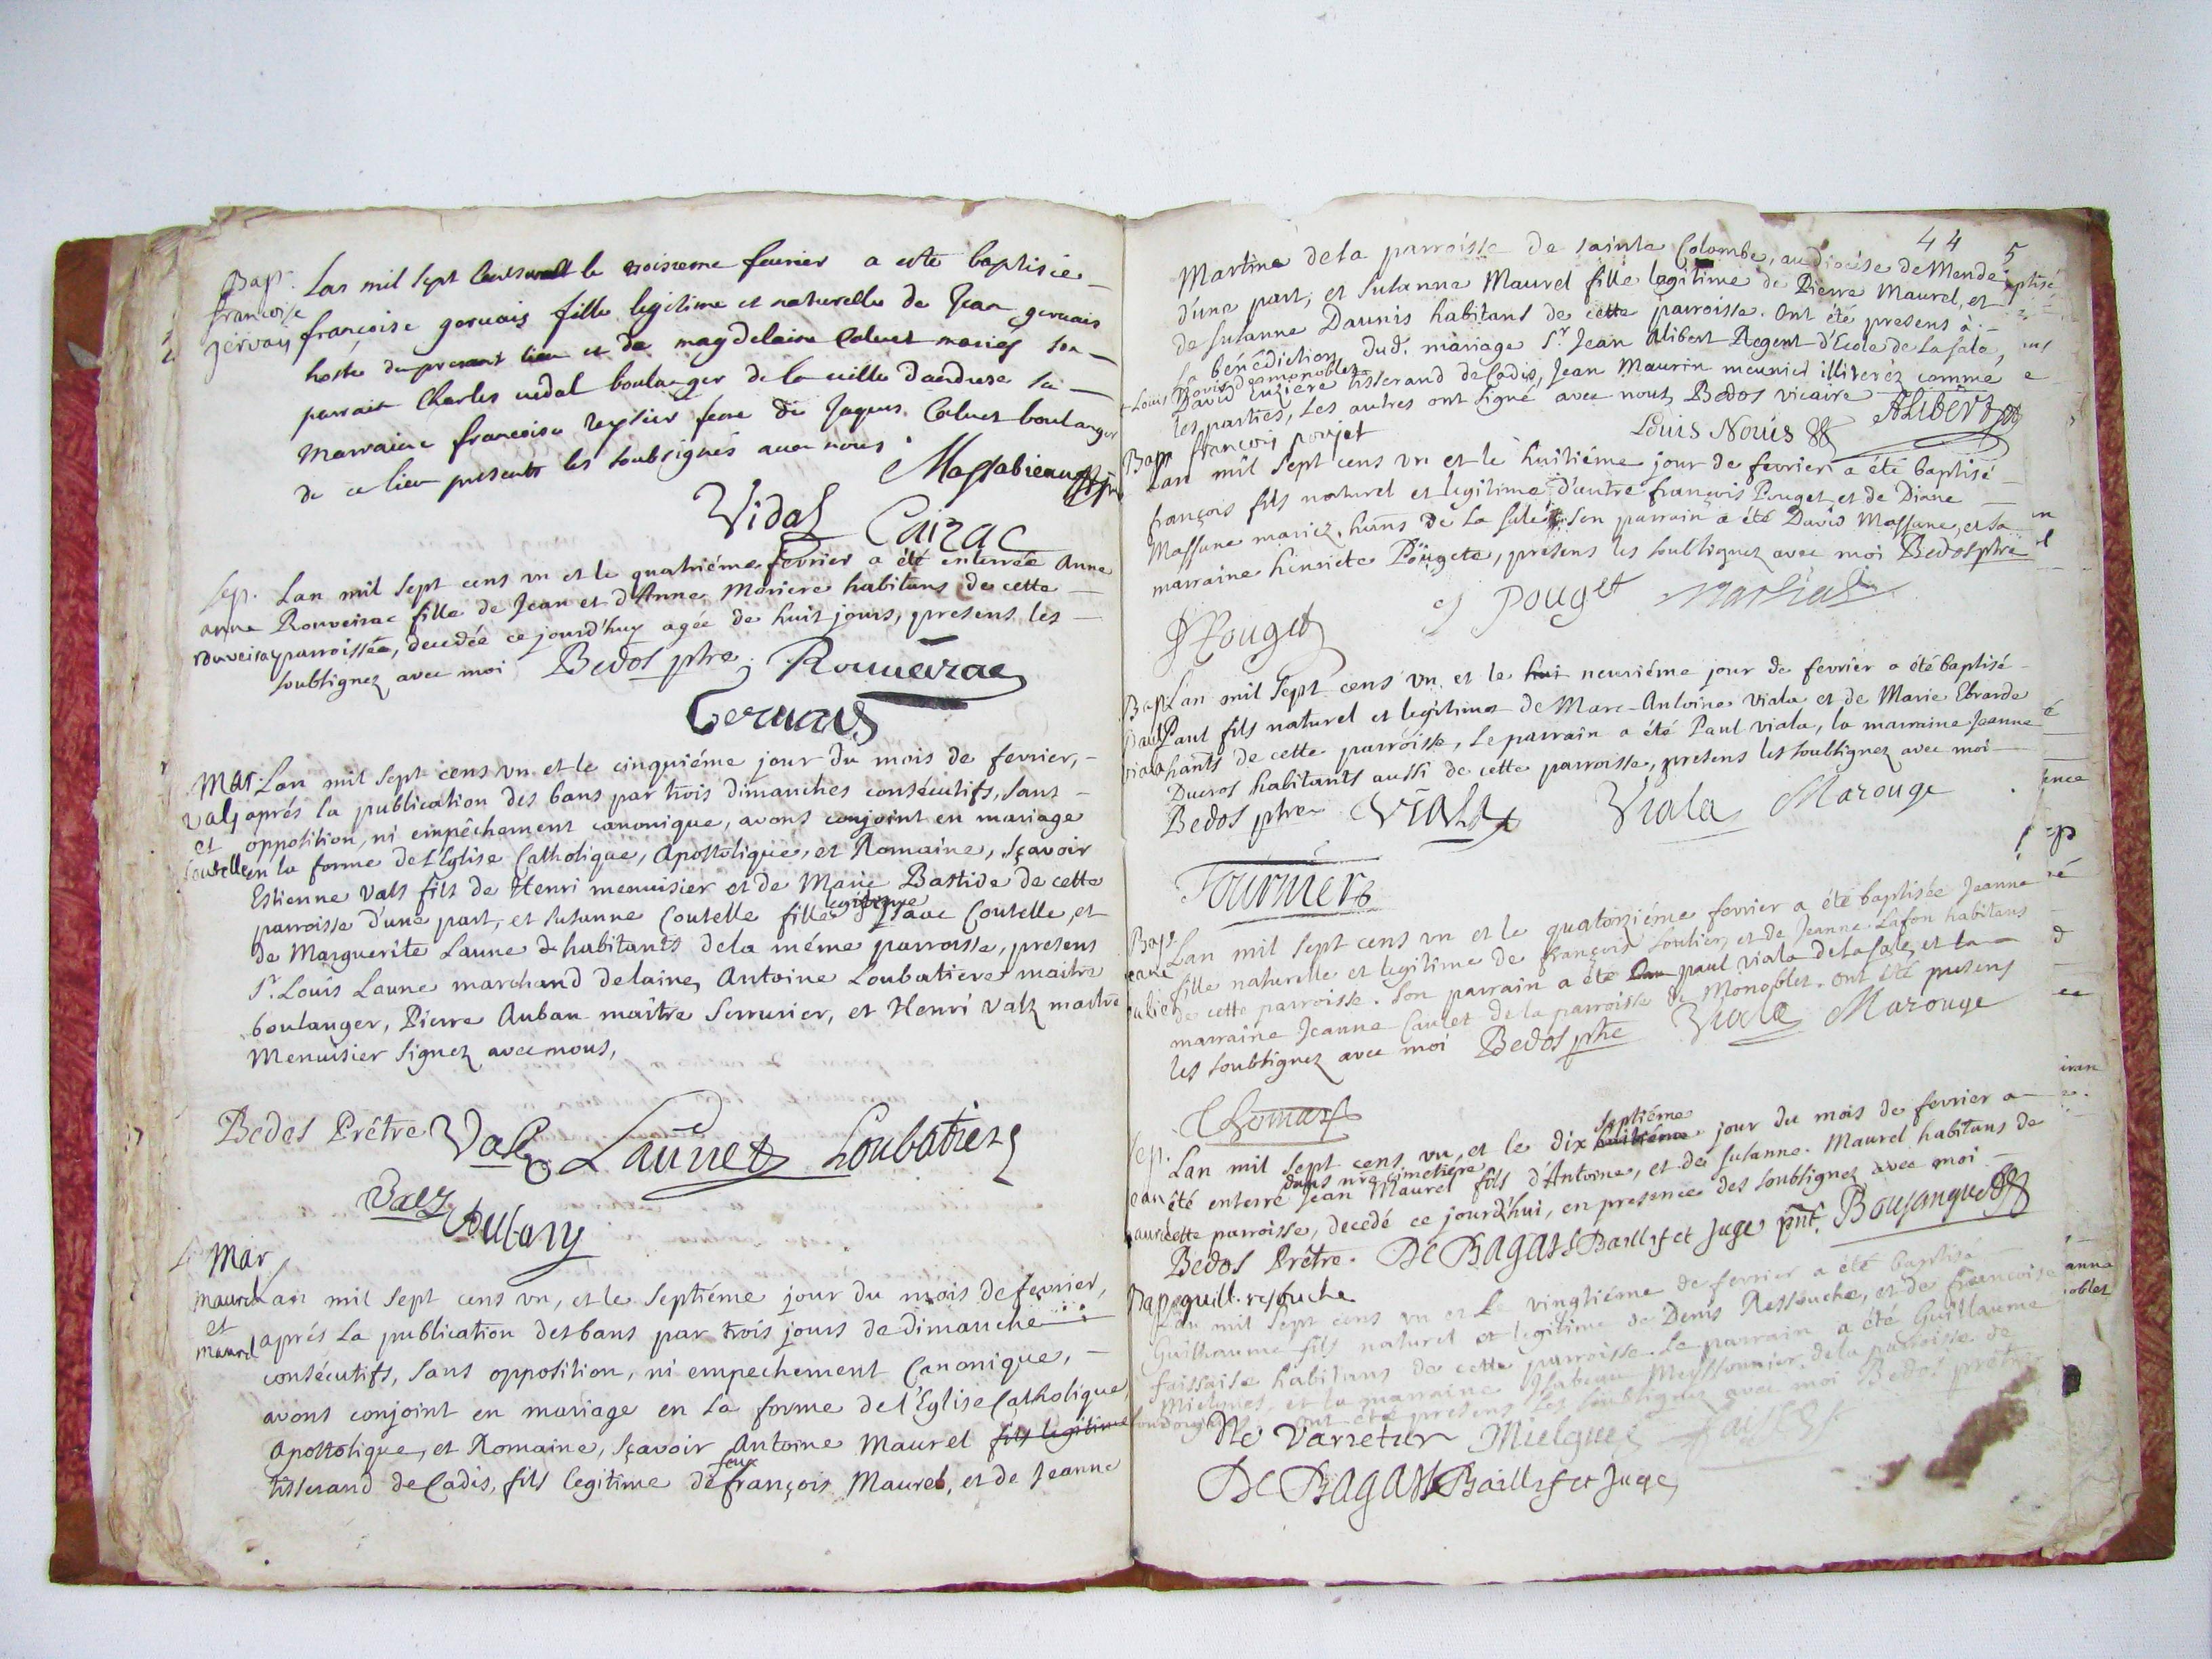 Bap.
francoise
gervais
Lan mil sept le troisieme feurier a este baptisée
françoise geruais fille legitime et naturelle de Jean geruais
hoste du present lieu et de magdelaine Caluet mariés son
parrain Charles vidal boulanger de la uille danduse sa
marraine francoise feme de Jaques Caluet boulanger
de ce lieu presents les soubsignés auec nous Massabieau
Vidal Cairac
Sep.
anne
rouveirac
Lan mil sept cens vn et le quatriéme fevrier a été enterrée Anne
Rouveirac fille de Jean et d'Anne Moniere habitans de cette
parroisse, decedée ce jourd'huy agée de huit jours, presens les
soubsignez avec moi Bedos ptre Rouueirac
Geruais
Mar.
valz
et
coutelle
Lan mil sept cens vn et le cinquiéme jour du mois de fevrier,
aprés la publication des bans par trois dimanches consécutifs, sans
opposition, ni empêchement canonique, avons conjoint en mariage
en la forme de l'Eglise Catholique, Apostolique, et Romaine, sçavoir
Estienne Vals fils de Henri menuisier et de Marie Bastide de cette
parroisse d'une part, et Susanne Coutelle fille legitime Isaac Coutelle, et
de Marguerite Laune habitants de la même parroisse, presens
Sr. Louis Laune marchand de laine, Antoine Loubatiere maitre
boulanger, Pierre Auban maître serrurier, et Henri Valz maitre
Menuisier signez avec nous,
Bedos Prêtre Valz Launet Loubatiere
Valz
Aubany
Mar
maurel
et
maurel
Lan mil sept cens vn, et le septiéme jour du mois de fevrier,
aprés la publication des bans par trois jours de dimanche
consécutifs, sans opposition, ni empechement Canonique,
avons conjoint en mariage en la forme de l'Eglise Catholique
Apostolique, et Romaine, sçavoir Antoine Maurel fils legitime
tisserand de Cadis, fils legitime de feux françois Maurel, et de Jeanne
44 5
Martine de la parroisse de sainte Colombe, au diocése de Mende
d'une part, et Susanne Maurel fille legitime de Pierre Maurel, et
de Susanne Daunis habitans de cette parroisse. Ont été presens à
la bénédiction dud. mariage Sr. Jean Alibert Regent d'Ecole de Lasale,
Louis Novis de monoblet
David Euziere tisserand de Cadis, Jean Maurin meunier illiterez comme
les parties, les autres ont signé avec nous Bedos vicaire
Louis Novis Alibert
Bap. françois poujet
Lan mil sept cens vn et le huitiéme jour de fevrier a été baptisé
françois fils naturel et legitime d'autre françois Pouget, et de Diane
Massane mariez, hans de La sale. Son parrain a été David Massane, et sa
marraine henriete Pougete, presens les soubsignez avec moi Bedos ptre
Pouget Pouget
Bap.
Paul
viala
Lan mil sept cens vn et le hui neuviéme jour de fevrier a été baptisé
Paul fils naturel et legitime de Marc-Antoine Viala et de Marie Ebrarde
hants de cette parroisse, Le parrain a été Paul viala, la marraine Jeanne
Ducros habitants aussi de cette parroisse, presens les soubsignez avec moi
Bedos ptre Viala Viala Marouge
Fournier
Bap.
Lan mil sept cens vn et le quatorziéme fevrier a été baptisée Jeanne
fille naturelle et legitime de françois Soulier, et de Jeanne Lafon habitans
de cette parroisse. Son parrain a été paul viala de Lasale, et la
marraine Jeanne Caulet de la parroisse de Monoblet. Ont été presens
les soubsignez avec moi Bedos ptre Viala Marouge
Sep.
Lan mil sept cens vn, et le dix huitiéme septiéme jour du mois de fevrier a
été enterré dans nre cimetiere Jean Maurel fils d'Antoine, et de Susanne Maurel habitans de
cette parroisse, decedé ce jourd'hui, en presence des soubsignez avec moi
Bedos Prêtre. De Bagars Baillif et Juge pnt. Bousanquet
Bap. guill. ressouche
Lan mil sept cens vn et le vingtiéme de fevrier a été baptisé
Guilhaume fils naturel et legitime de Denis Ressouche, et de françoise
faissaise habitans de cette parroisse. Le parrain a été Guillaume
Mielgues, et la marraine Isabeau Meyssonnier, de la parroisse de
ont été presens les soubsignez avec moi Bedos prêtre
Ne Varietur Mielgues
De Bagars Baillif et Juge